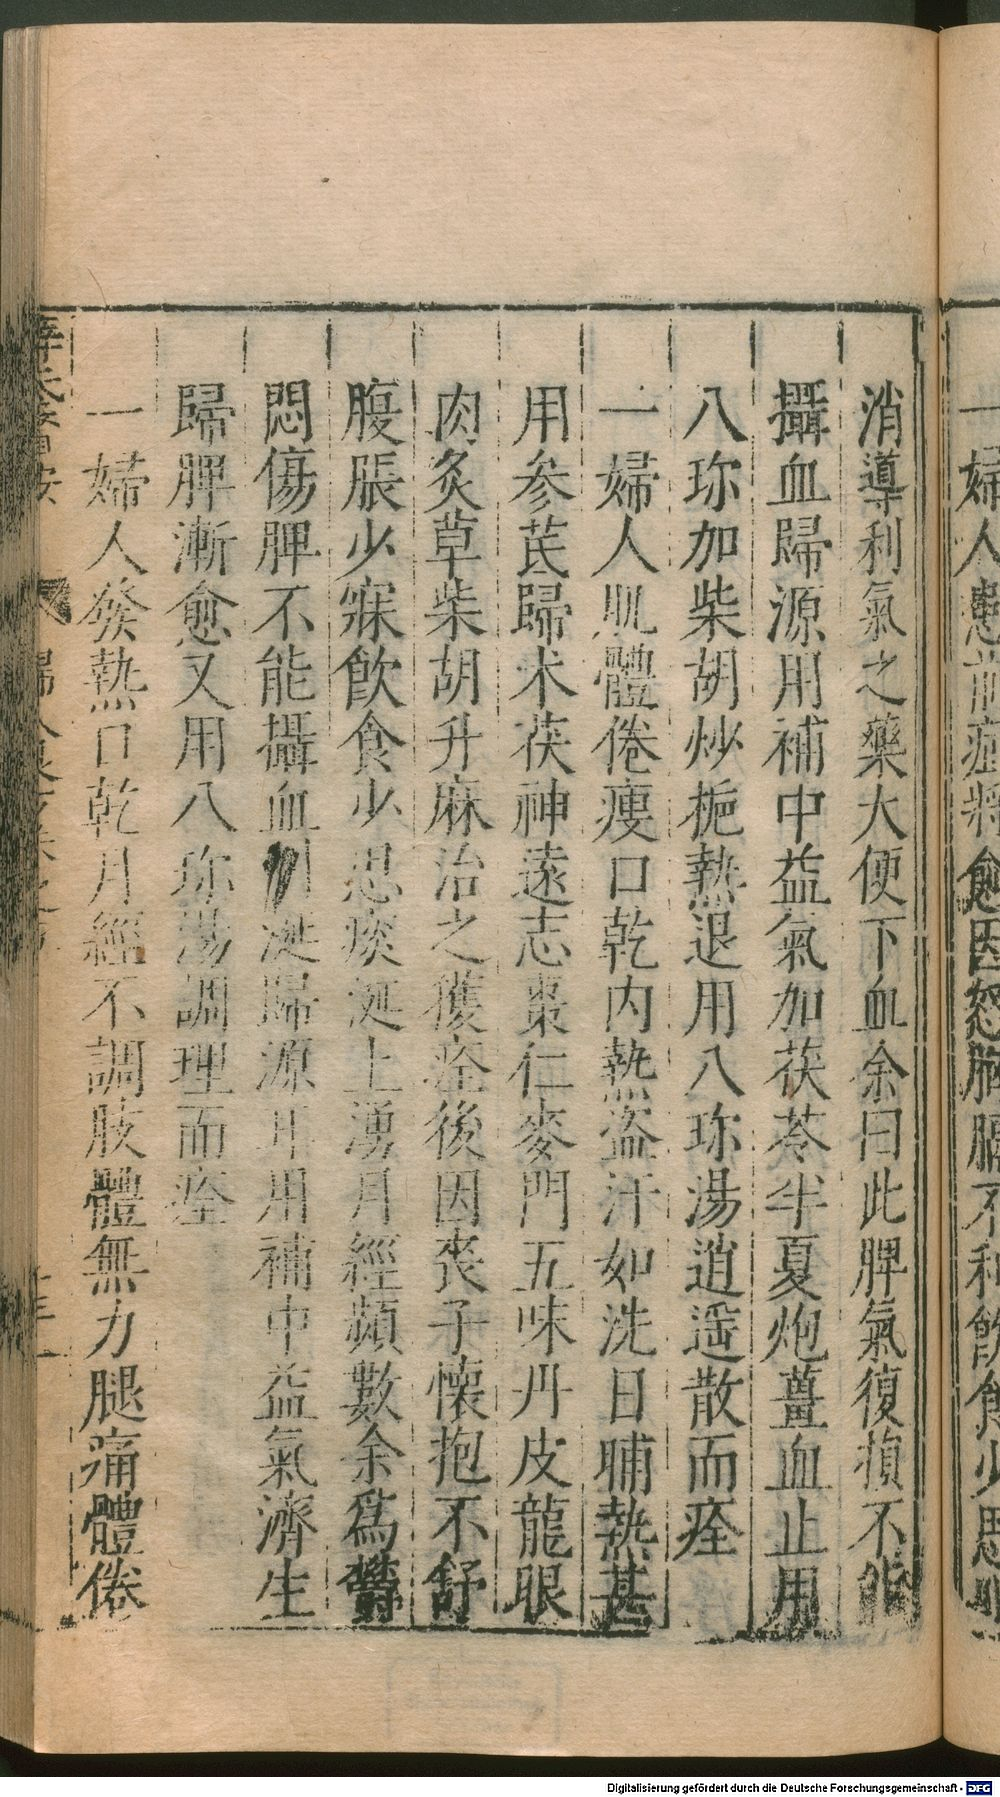 一婦人患前症將愈因怒胸膈不利飲食少思
消導利氣之藥大便下血余曰此脾氣復損不能
攝血歸源用補中益氣加茯苓半夏炮薑血止用
八珎加柴胡炒梔熱退用八珎湯逍遥散而痊
一婦人肌體倦瘦口乾内熱盗汗如洗日晡熱甚
用参芪歸术茯神遠志棗仁麥門五味丹皮龍眼
肉炙草柴胡升麻治之獲痊後因喪子懷抱不舒
腹脹少寐飲食少思痰涎上湧月經頻數余爲鬱
悶傷脾不能攝血制涎歸源耳用補中益氣濟生
歸脾漸愈又用八珎湯調理而痊
一婦人發熱口乾月經不調肢體無力腿痛體倦
薛氏醫按 婦人良方卷之
Digitalisierung gefördert durch die Deutsche Forschungsgemeinschaft - DFG